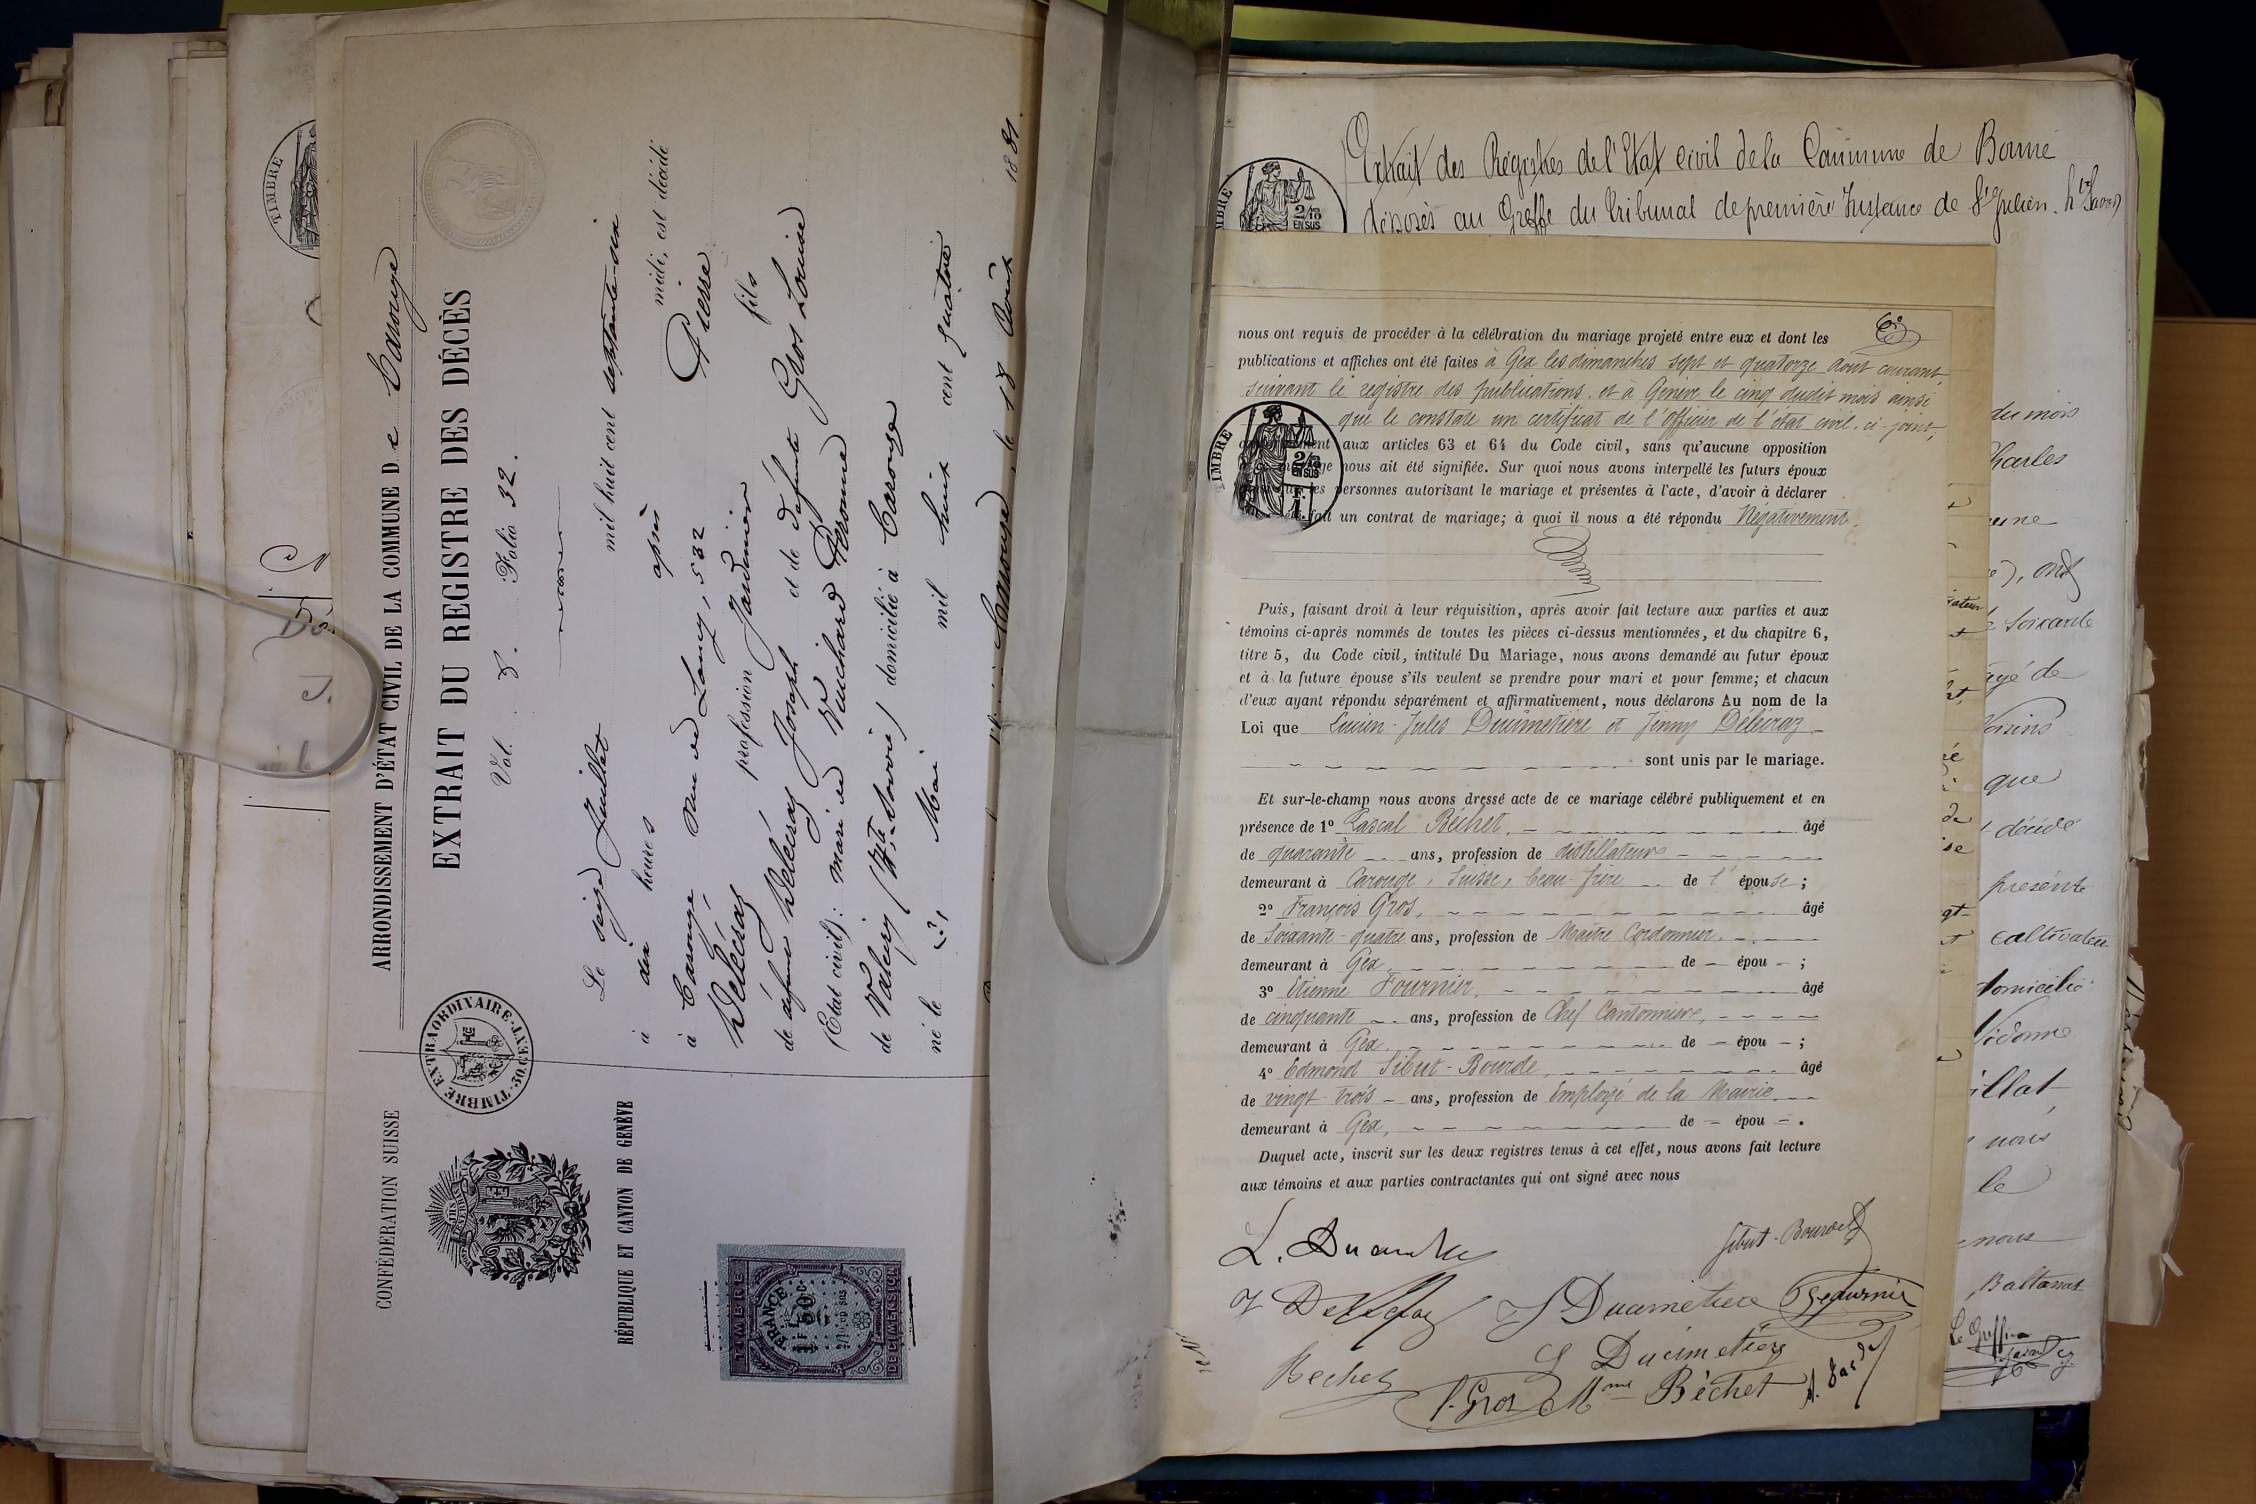 CONFÉDÉRATION SUISSE
RÉPUBLIQUE ET CANTON DE GENÈVE
TIMBRE EXTRAORDINAIRE. 30 CENT.
ARRONDISSEMENT D'ÉTAT CIVIL DE LA COMMUNE De Carouge
EXTRAIT DU REGISTRE DES DÉCÈS
Vol. 8. Folio 32.
Le seize Juillet mil huit cent septante-six
à dix heures après midi, est décédé
à Carouge, rue de Lancy, 532
Délécraz Pierre
profession Jardinier fils
de défunt Délécraz Joseph et de défunte Gros Louise
(Etat civil): marié à Vuichard Peronne
de Valeiry (Hte Savoie) domicilié à Carouge
né le Mai mil huit cent quatorze
Carouge, le 18 Août 1881.
TIMBRE
FRANCE
DE DIMENSION
TIMBRE
Extrait des Registres de l'Etat civil de la Commune de Bonne
déposés au Greffe du Tribunal de première Instance de St Julien. Hte Savoie
2/10 EN SUS
nous ont requis de procéder à la célébration du mariage projeté entre eux et dont les
publications et affiches ont été faites à Gex les dimanches sept et quatorze août courant,
suivant le registre des publications, et à Genève le cinq dudit mois ainsi
que le constate un certificat de l'officier de l'état civil, ci-joint;
aux articles 63 et 64 du Code civil, sans qu'aucune opposition
nous ait été signifiée. Sur quoi nous avons interpellé les futurs époux
personnes autorisant le mariage et présentes à l'acte, d'avoir à déclarer
fait un contrat de mariage; à quoi il nous a été répondu Négativement.
Puis, faisant droit à leur réquisition, après avoir fait lecture aux parties et aux
témoins ci-après nommés de toutes les pièces ci-dessus mentionnées, et du chapitre 6,
titre 5, du Code civil, intitulé Du Mariage, nous avons demandé au futur époux
et à la future épouse s'ils veulent se prendre pour mari et pour femme; et chacun
d'eux ayant répondu séparément et affirmativement, nous déclarons Au nom de la
Loi que Lucien-Jules Ducimetière et Jenny Délécraz
sont unis par le mariage.
Et sur-le-champ nous avons dressé acte de ce mariage célébré publiquement et en
présence de 1º Pascal Béchet, âgé
de quarante ans, profession de distillateur
demeurant à Carouge, Suisse, beau-frère de l'épouse;
2º François Gros, âgé
de soixante-quatre ans, profession de Maître Cordonnier
demeurant à Gex de – épou – ;
3º Etienne Fournier, âgé
de cinquante ans, profession de Chef Cantonnier,
demeurant à Gex de – épou – ;
4º Edmond Sibut-Bourde, âgé
de vingt-trois ans, profession de Employé de la Mairie
demeurant à Gex, de – épou – .
Duquel acte, inscrit sur les deux registres tenus à cet effet, nous avons fait lecture
aux témoins et aux parties contractantes qui ont signé avec nous
Sibut-Bourde
J Ducimetiere
Bechet
L Ducimetière
F. Gros Mme Béchet
du mois
Charles
soixante
âgé de
Voisins
que
décédé
présente
cultivateur
domicilié
nous
le
nous
Le Greffier